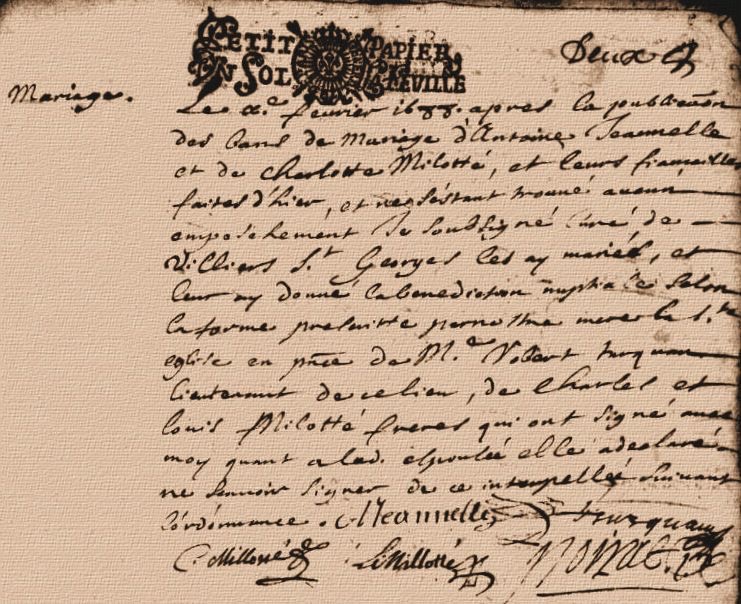 PETIT PAPIER
UN SOL LEVILLE
Deux
Mariage.
Le x.e feurier 1688. apres la publication
des bans de Mariage d'Antoine Jeannelle
et de Charlotte Milotté, et leurs fiancailles
faites d'hier, et ne s'éstant trouué aucun
empeschement Je soubsigné Curé de
Villiers S.t Georges les ay mariéz, et
leur ay donné la benediction nuptialle selon
la forme prescritte par nostre mere la S.te
eglise en pnce de M.e Turquau
lieutenant de ce lieu, de Charles et
louis Milotté freres qui ont signé auec
moy quant a lad. espousée elle a declaré
ne scauoir signer de ce interpellée suiuant
l'ordonnance. Jeannelle Turquau
C. Millotté L. Millotté